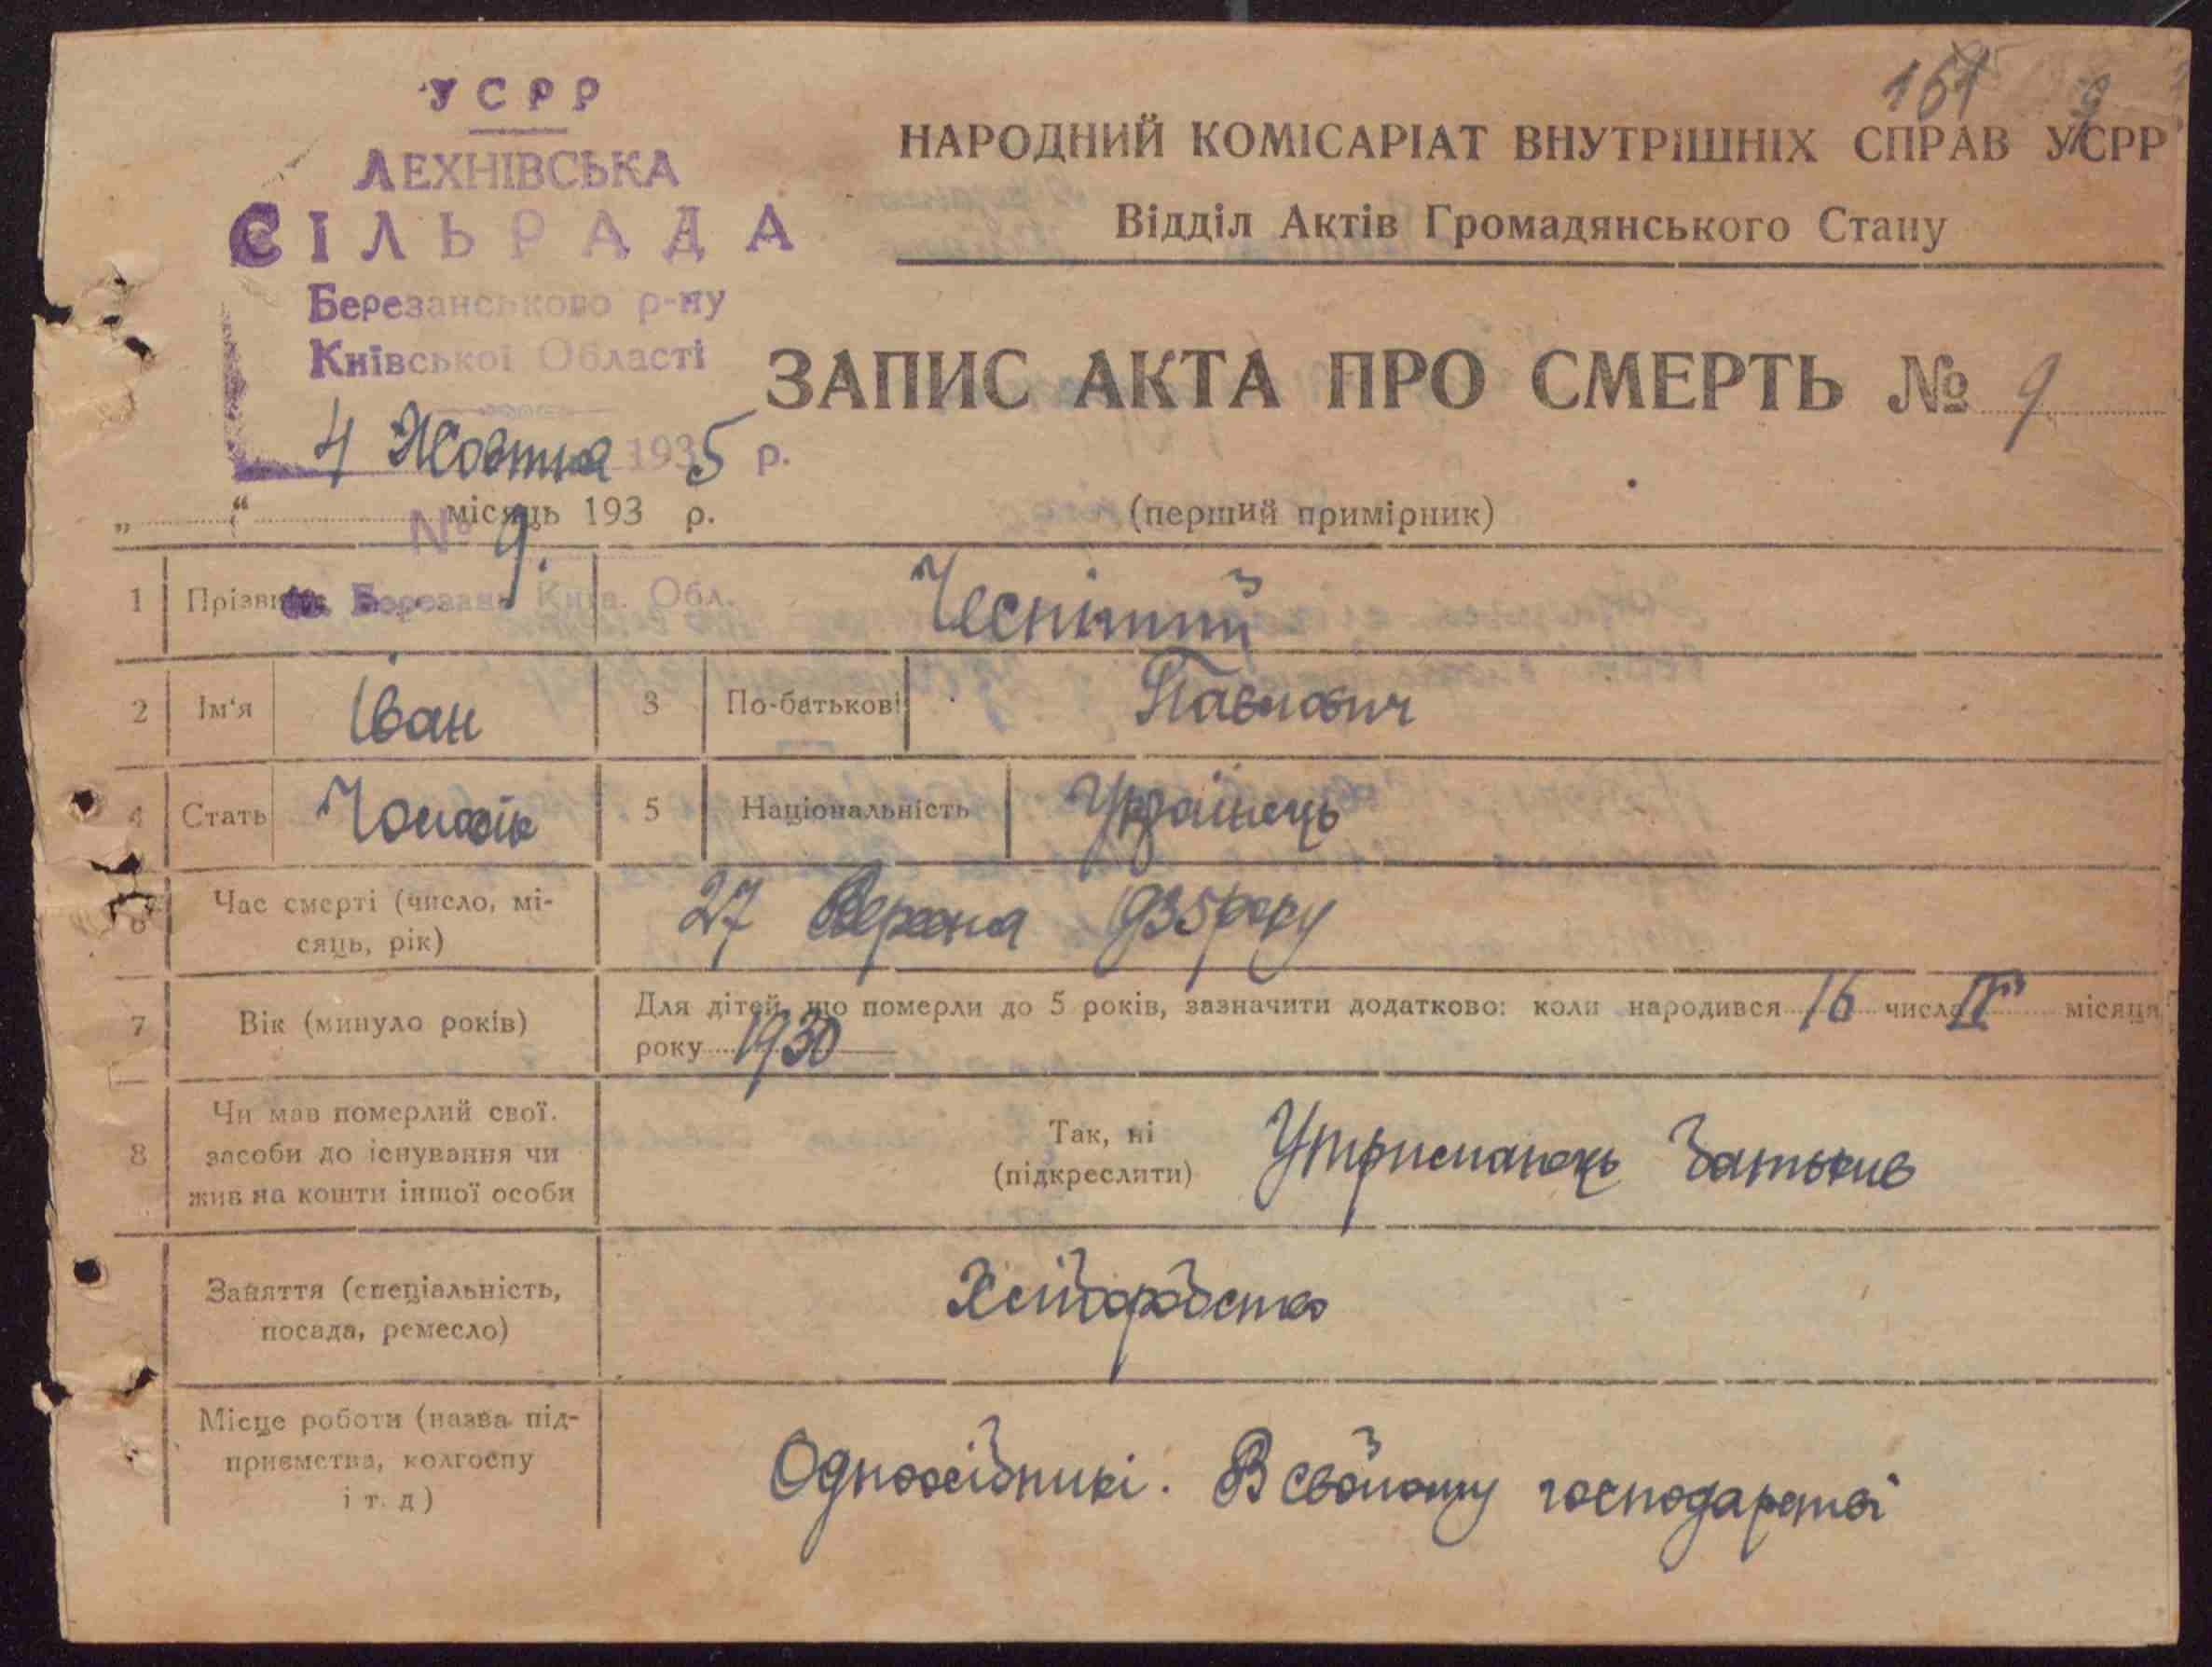 УСРР
ЛЕХНІВСЬКА
СІЛЬРАДА
Березанського р-ну
Київської Області
4 Жовтня 1935 р.
№ 9.
161
9
НАРОДНИЙ КОМІСАРІАТ ВНУТРІШНІХ СПРАВ УСРР
Відділ Актів Громадянського Стану
ЗАПИС АКТА ПРО СМЕРТЬ № 9
„ “ місяць 193 р.
(перший примірник)
1 Прізвище Березань Київ. Обл.
2 Ім‘я Іван 3 По-батькові Павлович
4 Стать Чоловік 5 Національність Українець
6 Час смерті (число, мі-
сяць, рік) 27 Вересня 1935 року
7 Вік (минуло років) Для дітей, що померли до 5 років, зазначити додатково: коли народився 16 числа місяця
року 1930
8 Чи мав померлий свої
засоби до існування чи
жив на кошти іншої особи
Так, ні
(підкреслити)
Утриманець батьків
Заняття (спеціальність,
посада, ремесло)
Хліборобство
Місце роботи (назва під-
приємства, колгоспу
і т. д)
Одноосібникі. В свойому господарстві